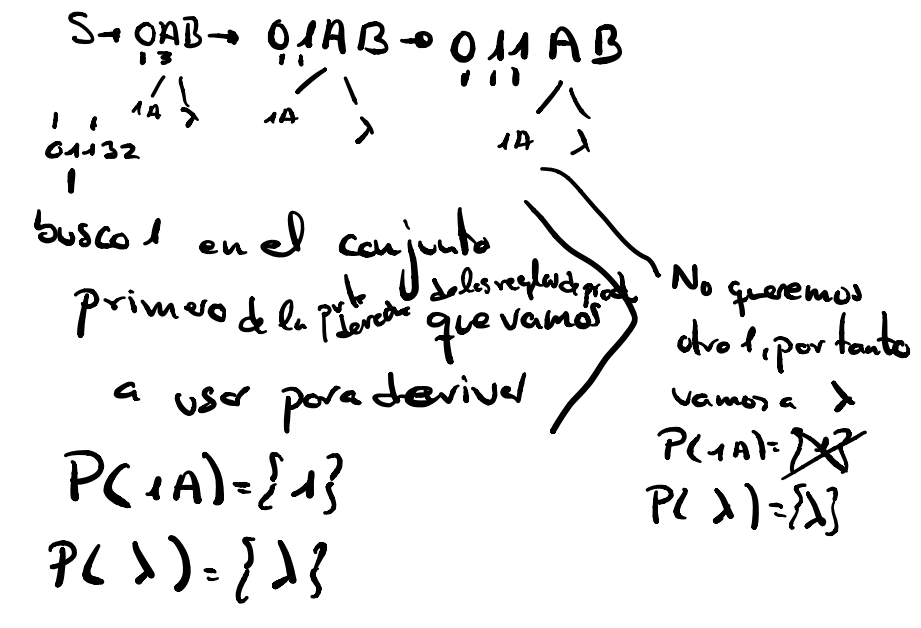 S → 0AB → 01AB → 011AB
1A λ 1A λ 1A λ
01132
busco 1 en el conjunto
primero de la prte derecha de las reglas de prod. que vamos
a usar para derivar
P(1A)={1}
P(λ)={λ}
No queremos
otro 1, por tanto
vamos a λ
P(1A)={1}
P(λ)={λ}